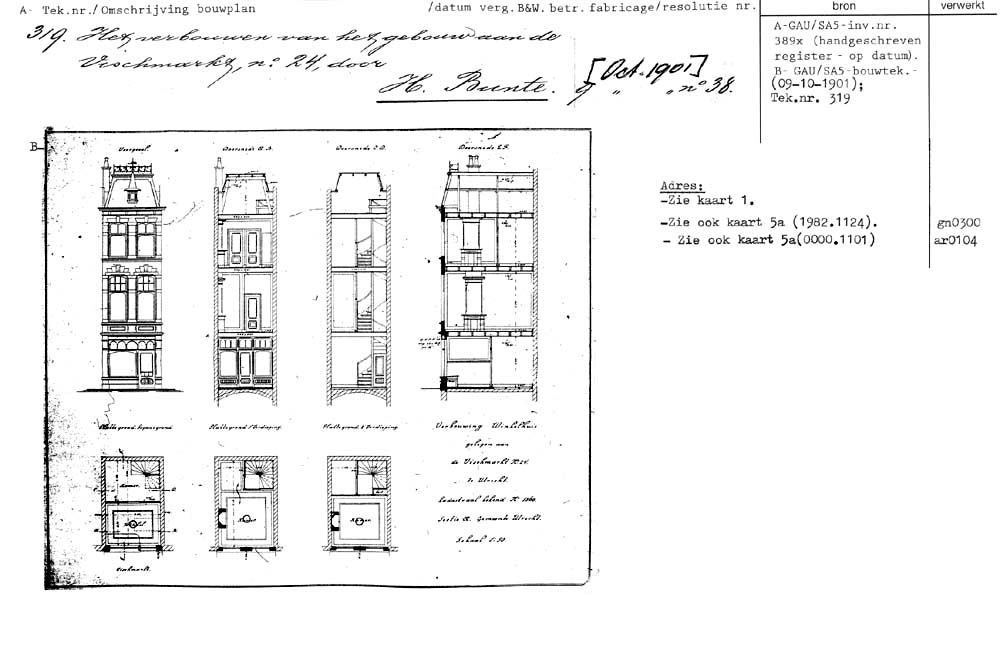 A- Tek.nr./Omschrijving bouwplan
/datum verg.B&W. betr. fabricage/resolutie nr.
bron
verwerkt
319. Het verbouwen van het gebouw aan de
Vischmarkt, no 24, door
H. Bunte.
[Oct. 1901]
9 " " no 38.
A-GAU/SA5-inv.nr.
389x (handgeschreven
register - op datum).
B- GAU/SA5-bouwtek.-
(09-10-1901);
Tek.nr. 319
Adres:
-Zie kaart 1.
-Zie ook kaart 5a (1982.1124).
gn0300
- Zie ook kaart 5a(0000.1101)
ar0104
B-
Voorgevel.
Doorsnede A.B.
Doorsnede C.D.
Doorsnede E.F.
Platte grond begane grond
Platte grond 1e Verdieping.
Platte grond 2e Verdieping.
Verbouwing Winkelhuis
gelegen aan
de Vischmarkt No 24.
te Utrecht.
Kadastraal bekend No 1860.
Sectie A. Gemeente Utrecht.
Schaal 1:50
Kamer
Winkel
Kamer
Kamer
Vischmarkt.